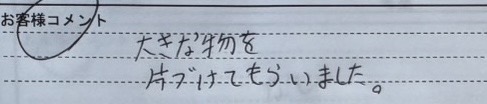 お客様コメント
大きな物を
片づけてもらいました。